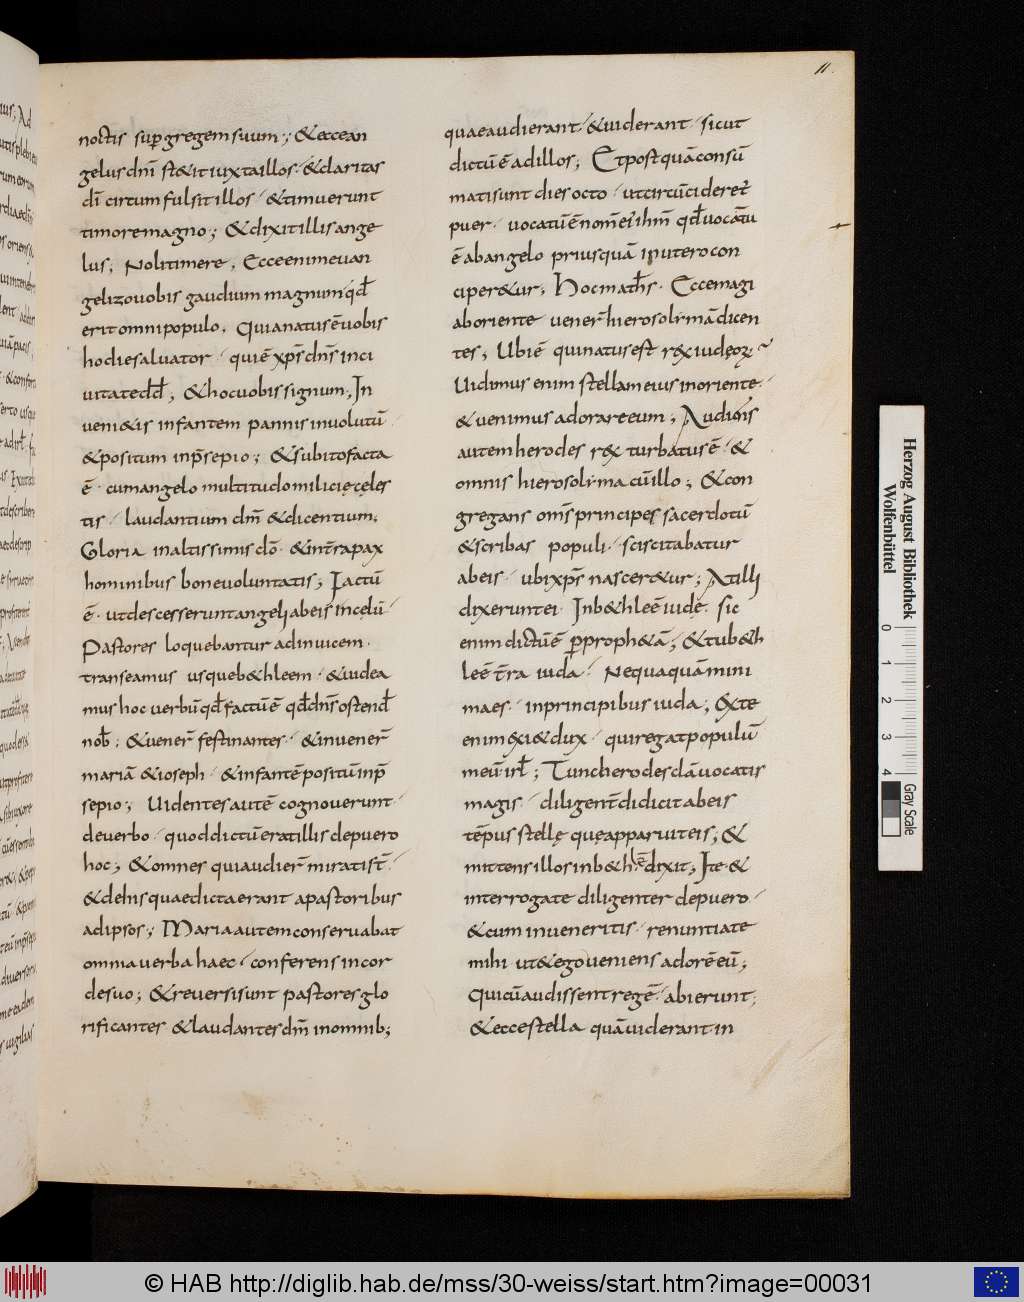 11.
noctis supgregem suum; & eccean
gelus dnī st&it iuxta illos· & claritas
dī circum fulsit illos· & timuerunt
timore magno; & dixit illis ange
lus; Nolitimere, Ecce enim euan
gelizo uobis gaudium magnum· qđ
erit omni populo, Quia natus ē uobis
hodie saluator· qui ē xp̄s dn̄s in ci
uitate dd, & hoc uobis signum, In
ueni&is infantem pannis inuolutū·
& positum in p̄sepio; & subito facta
ē· cum angelo multitudo milicię cęles
tis· laudantium dm̄ & dicentium;
Gloria in altissimis dō· & in tr̄a pax
hominibus bone uoluntatis; Factū
ē· ut descesserunt angeli abeis in cęlū·
Pastores loquebantur adinuicem·
transeamus usque b&hleem· & uidea
mus hoc uerbū qđ factū ē qđ dn̄s ostend
nob· & uener̄ festinantes· & inuener̄
mariā & ioseph· & infantē positū in p̄
sepio; Uidentes autē cognouerunt·
de uerbo· quod dictū erat illis de puero
hoc; & omnes qui audier̄ mirati st̄·
& de his quae dicta erant a pastoribus
ad ipsos; Maria autem conseruabat
omnia uerba haec· conferens in cor
de suo; & reuersi sunt pastores glo
rificantes & laudantes dm̄ in omnib;
quae audierant· & uiderant· sicut
dictū ē ad illos; Et postquā consū
mati sunt dies octo· ut circūcideret̄
puer· uocatū ē nom̄ ei· ihm̄ qđ uocatū
ē ab angelo priusquā in utero con
ciper&ur, Hoc math̄s· Ecce magi
ab oriente uener̄ hierosolimā dicen
tes; Ubi ē qui natus est r&x iudęoꝝ
Uidimus enim stellam eius in oriente·
& uenimus adorare eum; Audiens
autem herodes r&x turbatus ē· &
omnis hierosolima cū illo; & con
gregans om̄s principes sacerdotū
& scribas populi· sciscitabatur
ab eis· ubi xp̄s nascer&ur; At illi
dixerunt ei· In b&hleē iudę· sic
enim dictū ē p proph&ā; & tu b&h
leē t̄ra iuda· Nequaquā mini
ma es· in principibus iuda, Ex te
enim exi& dux· qui regat populū
meū irl̄; Tunc herodes clā uocatis
magis· diligent̄ didicit ab eis
tēpus stellę quę apparuit eis; &
mittens illos in b&hlē dixit; Ite &
interrogate diligenter de puero·
& cum inueneritis· renuntiate
mihi ut & ego ueniens adorē eū;
Qui cū audissent regē· abierunt;
& ecce stella quā uiderant in
Herzog August Bibliothek
Wolfenbüttel
0 1 2 3 4
Gray Scale
© HAB http://diglib.hab.de/mss/30-weiss/start.htm?image=00031